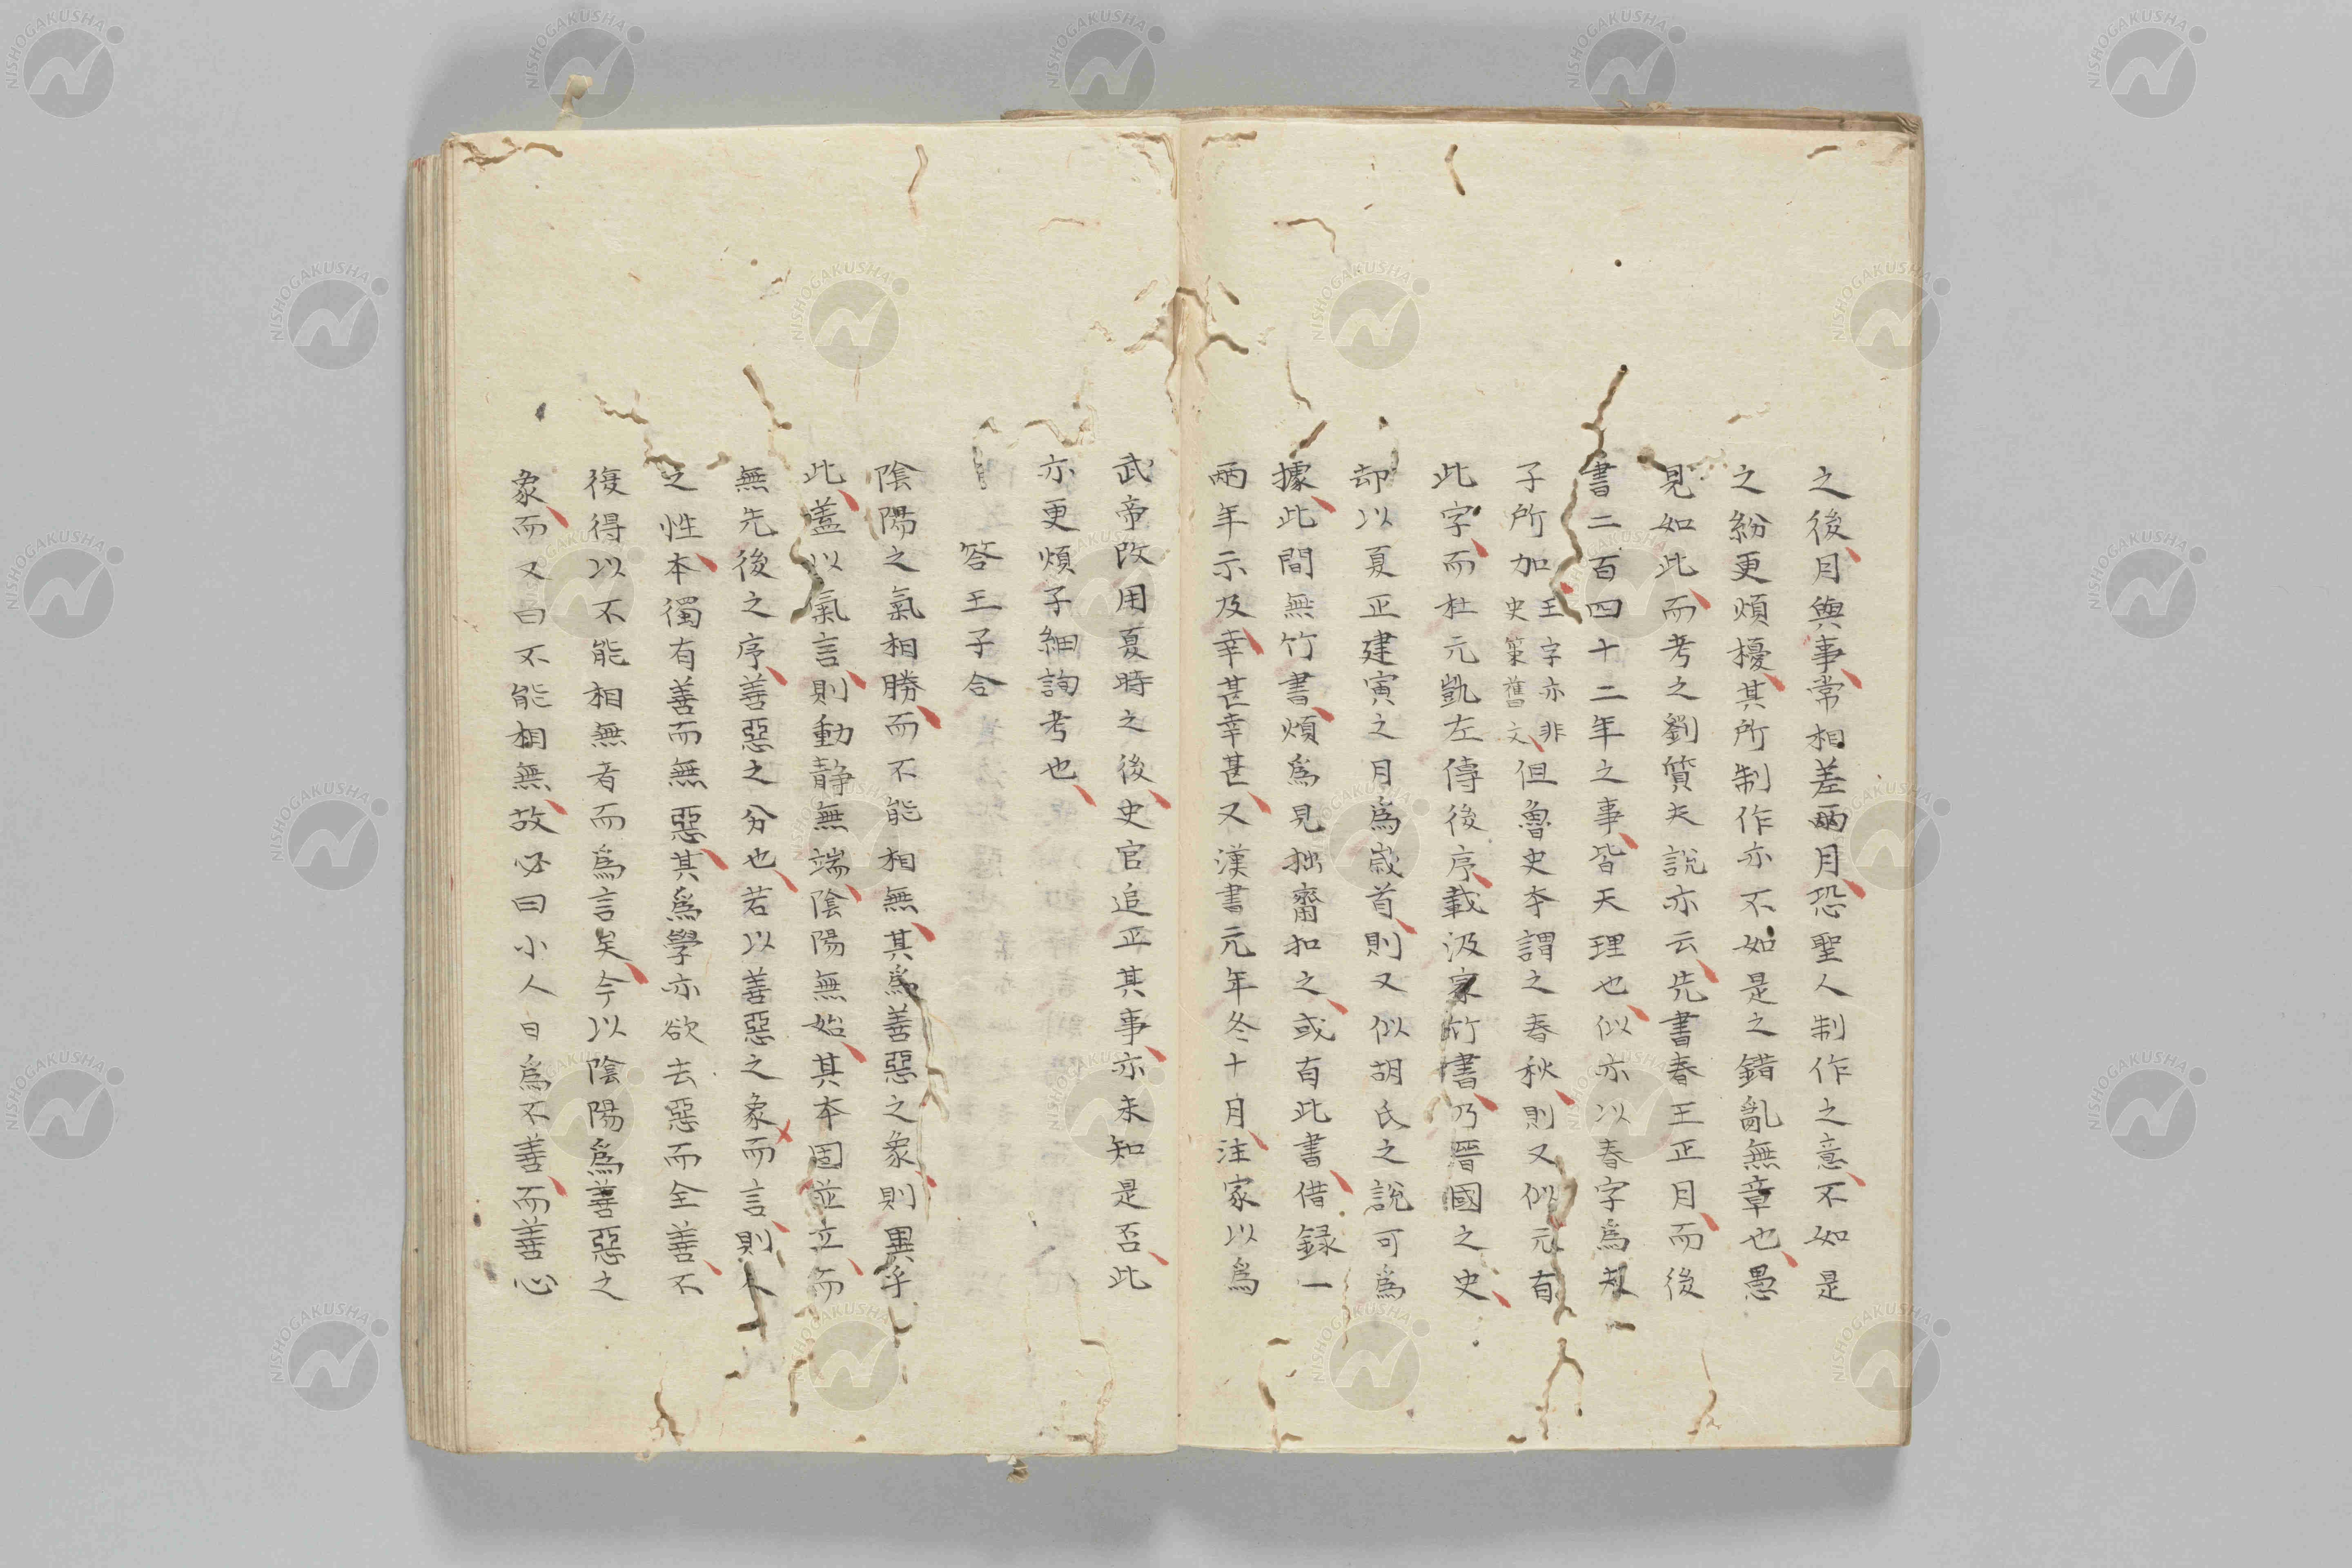 之後月與事常相差兩月恐聖人制作之意不如是
之紛更煩擾其所制作亦不如是之錯亂無章也愚
見如此而考之劉質夫說亦云先書春王正月而後
書二百四十二年之事皆天理也似亦以春字爲夫
子所加王字亦非史策舊文但魯史本謂之春秋則又似元有
此字而杜元凱左傳後序載汲冢竹書乃晉國之史
却以夏正建寅之月爲歲首則又似胡氏之說可爲
據此間無竹書煩爲見拙齋扣之或有此書借録一
兩年示及幸甚幸甚又漢書元年冬十月注家以爲
武帝改用夏時之後史官追正其事亦未知是否此
亦更煩子細詢考也
答王子合
陰陽之氣相勝而不能相無其爲善惡之象則異乎
此蓋以氣言則動靜無端陰陽無始其本固並立而
無先後之序善惡之分也若以善惡之象而言則人
之性本獨有善而無惡其爲學亦欲去惡而全善不
復得以不能相無者而爲言矣今以陰陽爲善惡之
象而又曰不能相無故必曰小人日爲不善而善心
NISHOGAKUSHA